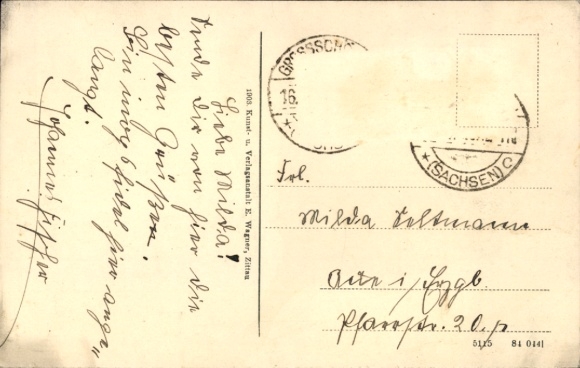 Liebe Milda!
Sende Dir von hier die
besten Grüßen.
Bin mogs fidel hier ange„
langt.
Johannes Fischer
1903. Kunst- u. Verlagsanstalt E. Wagner, Zittau
GROSSSCHÖ
16.
(SACHSEN) C
Frl.
Milda
Aue i/Erzgb.
Pfarrstr. 20.
5115 84 0441